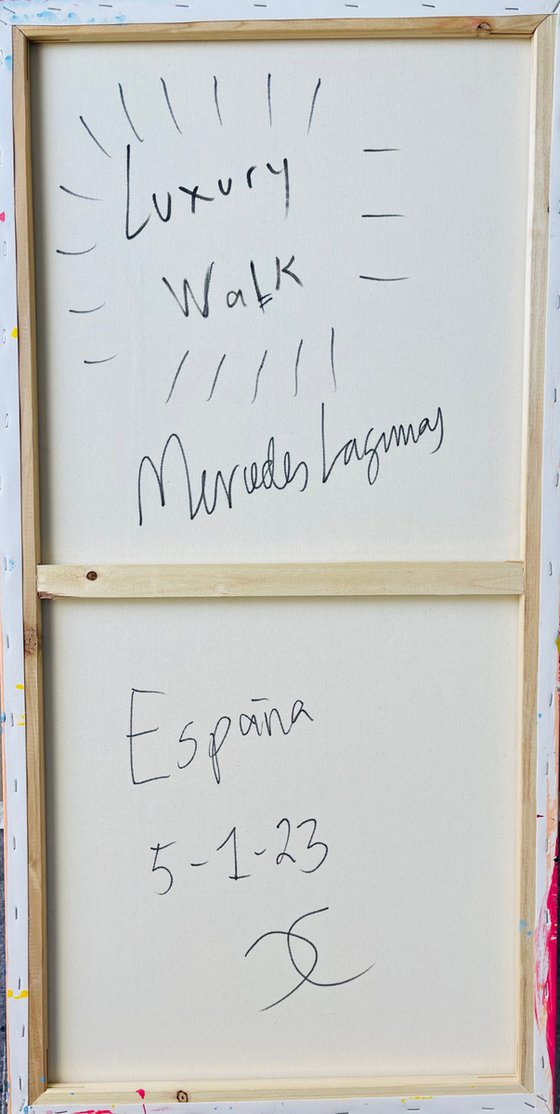 Luxury
Walk
Mercedes Lagunas
España
5-1-23